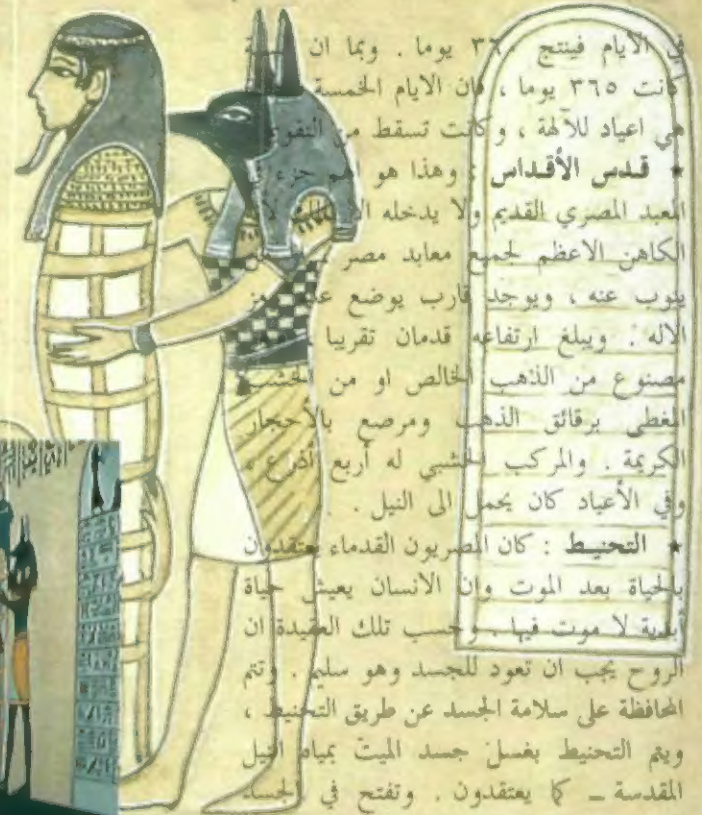 في الأيام فينتج ٣٦٠ يوما . وبما ان
كانت ٣٦٥ يوما ، فان الايام الخمسة
هي اعياد للآلهة ، وكانت تسقط من التقويم
★ قدس الأقداس : وهذا هو اهم جزء في
المعبد المصري القديم ولا يدخله الا
الكاهن الاعظم لجميع معابد مصر
ينوب عنه ، ويوجد قارب يوضع
الاله . ويبلغ ارتفاعه قدمان تقريبا ،
مصنوع من الذهب الخالص او من الخشب
المغطى برقائق الذهب ومرصع بالأحجار
الكريمة . والمركب الخشبي له أربع أذرع ،
وفي الأعياد كان يحمل الى النيل .
★ التحنيط : كان المصريون القدماء يعتقدون
بالحياة بعد الموت وان الانسان يعيش حياة
أبدية لا موت فيها . وحسب تلك العقيدة ان
الروح يجب ان تعود للجسد وهو سليم . وتتم
المحافظة على سلامة الجسد عن طريق التحنيط ،
ويتم التحنيط بغسل جسد الميت بمياه النيل
المقدسة ــ كما يعتقدون . وتفتح في الجسد